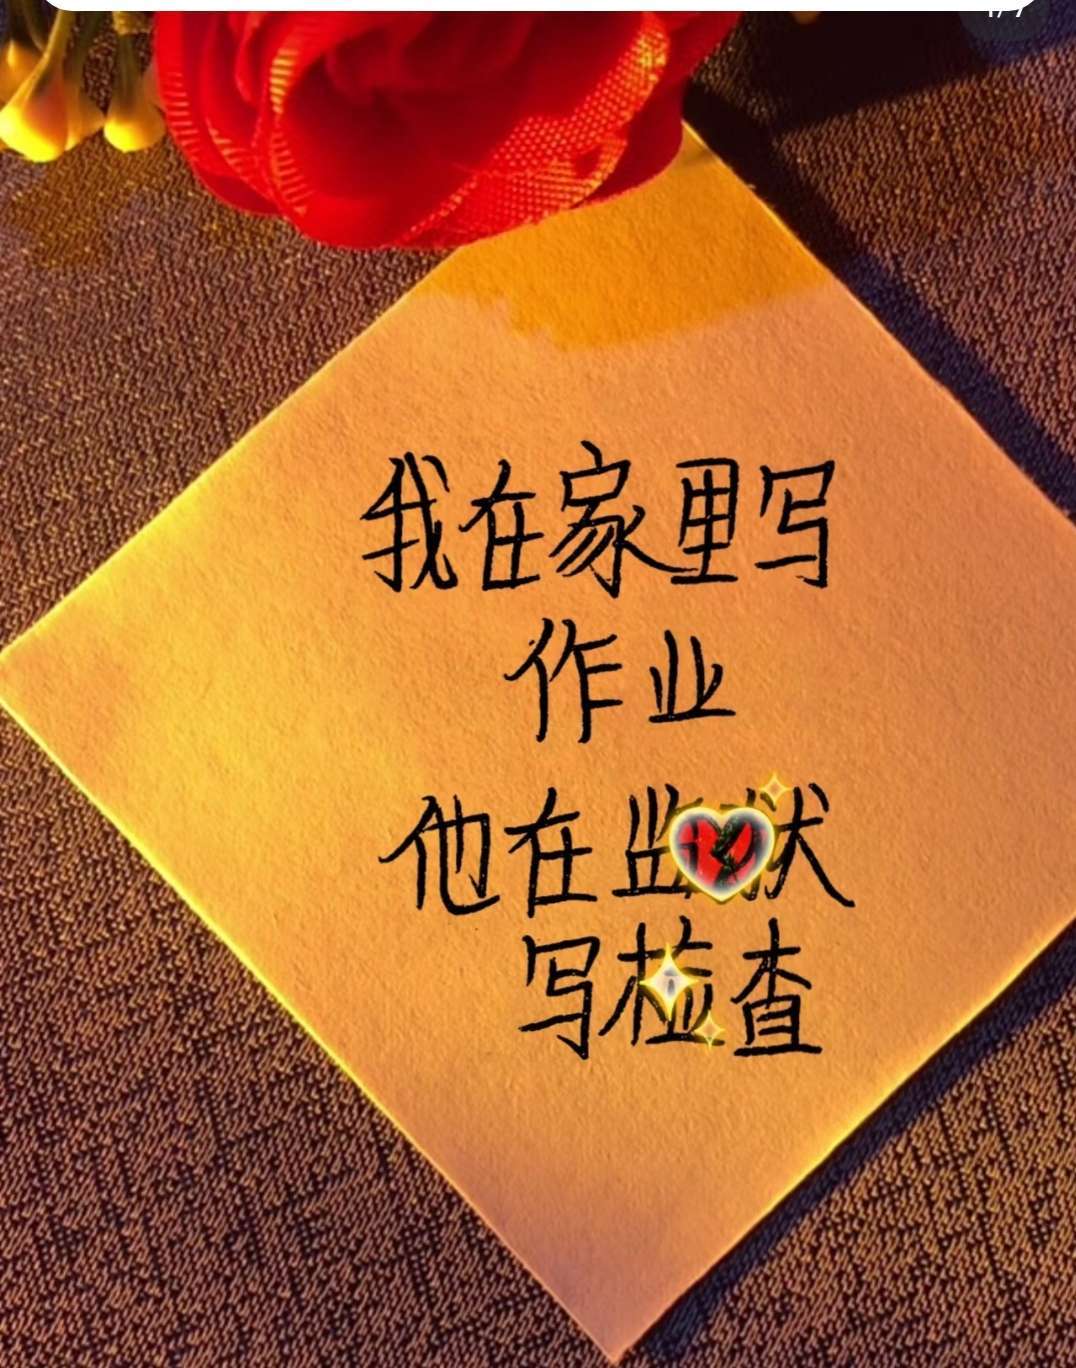 我在家里写
作业
他在监狱
写检查